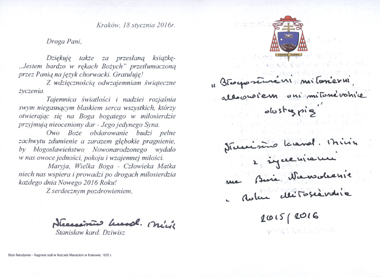 Kraków, 18 stycznia 2016r.
Droga Pani,
Dziękuję także za przesłaną książkę-
„Jestem bardzo w rękach Bożych” przetłumaczoną
przez Panią na język chorwacki. Gratuluję!
Z wdzięcznością odwzajemniam świąteczne
życzenia.
Tajemnica światłości i nadziei rozjaśnia
swym niegasnącym blaskiem serca wszystkich, którzy
otwierając się na Boga bogatego w miłosierdzie
przyjmują nieoceniony dar - Jego jedynego Syna.
Owo Boże obdarowanie budzi pełne
zachwytu zdumienie a zarazem głębokie pragnienie,
by błogosławieństwo Nowonarodzonego wydało
w nas owoce jedności, pokoju i wzajemnej miłości.
Maryja, Wielka Boga - Człowieka Matka
niech nas wspiera i prowadzi po drogach miłosierdzia
każdego dnia Nowego 2016 Roku!
Z serdecznym pozdrowieniem,
Stanisław kard. Dziwisz
Stanisław kard. Dziwisz
„Błogosławieni miłosierni,
albowiem oni miłosierdzia
dostąpią”
Stanisław kard. Dziwisz
z życzeniami
na Boże Narodzenie
w Roku Miłosierdzia
2015/2016
Boże Narodzenie -
w Krakowie,